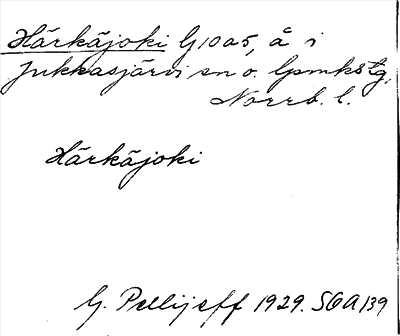 Härkäjoki G10a5, å i
Jukkasjärvi sn o. lpmkstg,
Norrb. l.
Härkäjoki
G. Pellijeff 1929. SOA 139